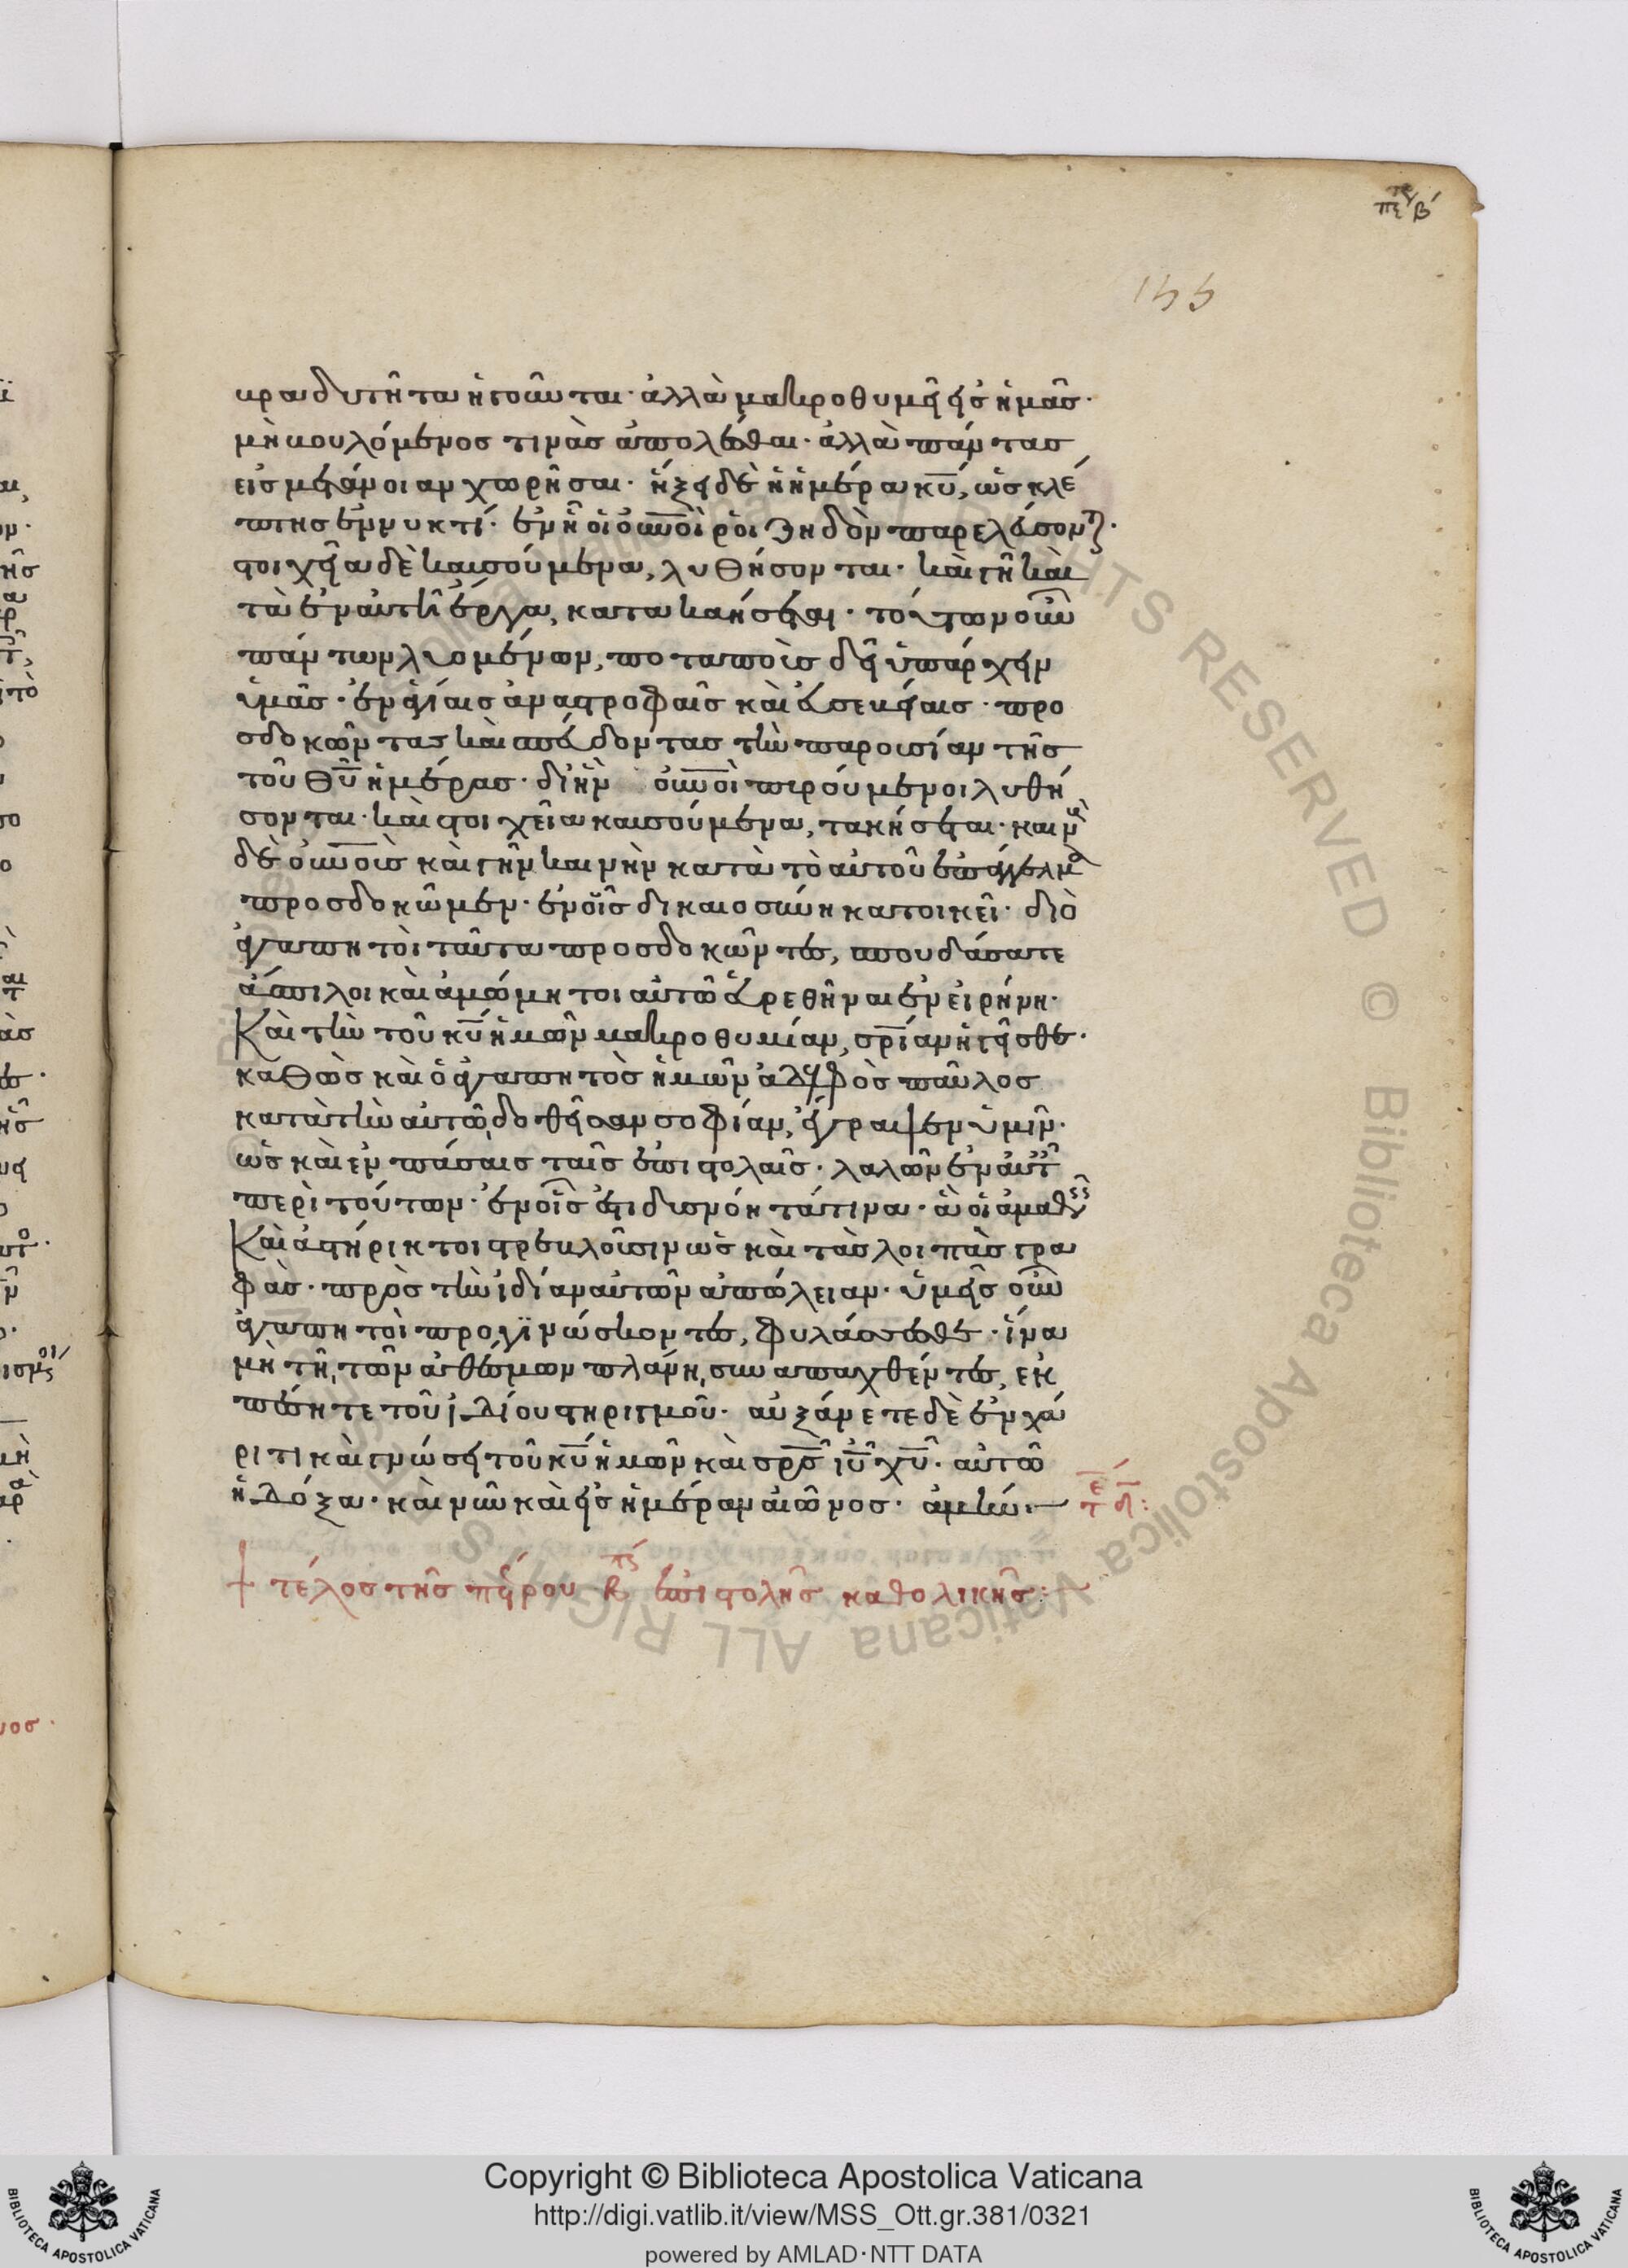 πε τρ β´
155
βραδυτῆτα ἡγοῦνται· ἀλλὰ μακροθυμεῖ εἰς ἡμᾶς·
μὴ βουλόμενος τινὰς ἀπολέσθαι· ἀλλὰ πάντας
εἰς μετάνοιαν χωρῆσαι· ἥξει δὲ ἡ ἡμέρα κυ, ὡς κλέ
πτης ἐν νυκτί· ἐν ᾗ οἱ ουνοὶ ῥοιζηδὸν παρελεύσοντ·
στοιχεῖα δὲ καυσούμενα, λυθήσονται· καὶ γῆ καὶ
τὰ ἐν αὐτῆ ἔργα, κατακαήσεται· τούτων οὖν
πάντων λυομένων, ποταποὺς δεῖ ὑπάρχειν
ὑμᾶς· ἐν ἁγίαις ἀναστροφαῖς καὶ εὐσεβείαις· προ
σδοκῶντας καὶ σπεύδοντας τὴν παρουσίαν τῆς
τοῦ θυ ἡμέρας· δι ἣν ουνοὶ πυρούμενοι λυθή
σονται· καὶ στοιχεῖα καυσούμενα, τακήσεται· καιν
δὲ ουνοὺς καὶ γῆν καινὴν κατὰ τὸ αὐτοῦ ἐπάγγελμ
προσδοκῶμεν· ἐν οἷς δικαιοσύνη κατοικεῖ· διὸ
ἀγαπητοὶ ταῦτα προσδοκῶντες, σπουδάσατε
ἄσπιλοι καὶ ἀμώμητοι αὐτῶ εὑρεθῆναι ἐν εἰρήνη·
Καὶ τὴν τοῦ κυ ἡμῶν μακροθυμίαν, σρίαν ἡγεῖσθε·
καθὼς καὶ ὁ ἀγαπητὸς ἡμῶν ἀδελφὸς παῦλος
κατὰ τὴν αὐτῶ δοθεῖσαν σοφίαν, ἔγραψεν ὑμῖν·
ὡς καὶ ἐν πάσαις ταῖς ἐπιστολαῖς· λαλῶν ἐν αὐτ
περὶ τούτων· ἐν οἷς ἐστι δυσνόητά τινα· ἃ οἱ ἀμαθεῖς
Καὶ ἀστήρικτοι στρεβλοῦσιν ὡς καὶ τὰς λοιπὰς γρα
φάς· πρὸς τὴν ἰδίαν αὐτῶν ἀπώλειαν· ὑμεῖς οὖν
ἀγαπητοὶ προγϊνώσκοντες, φυλάσσεσθε· ἵνα
μὴ τῆ τῶν ἀθέσμων πλάνη, συναπαχθέντες, ἐκ
πέσητε τοῦ ἰδίου στηριγμοῦ· αὐξάνετε δὲ ἐν χά
ριτι καὶ γνώσει τοῦ κυ ἡμῶν καὶ σρς ιυ χυ· αὐτῶ
ἡ δόξα· καὶ νῦν καὶ εἰς ἡμέραν αἰῶνος· ἀμήν:
+ τέλος τῆς πέτρου β ἐπιστολῆς καθολικῆς:
Copyright © Biblioteca Apostolica Vaticana
http://digi.vatlib.it/view/MSS_Ott.gr.381/0321
powered by AMLAD·NTT DATA